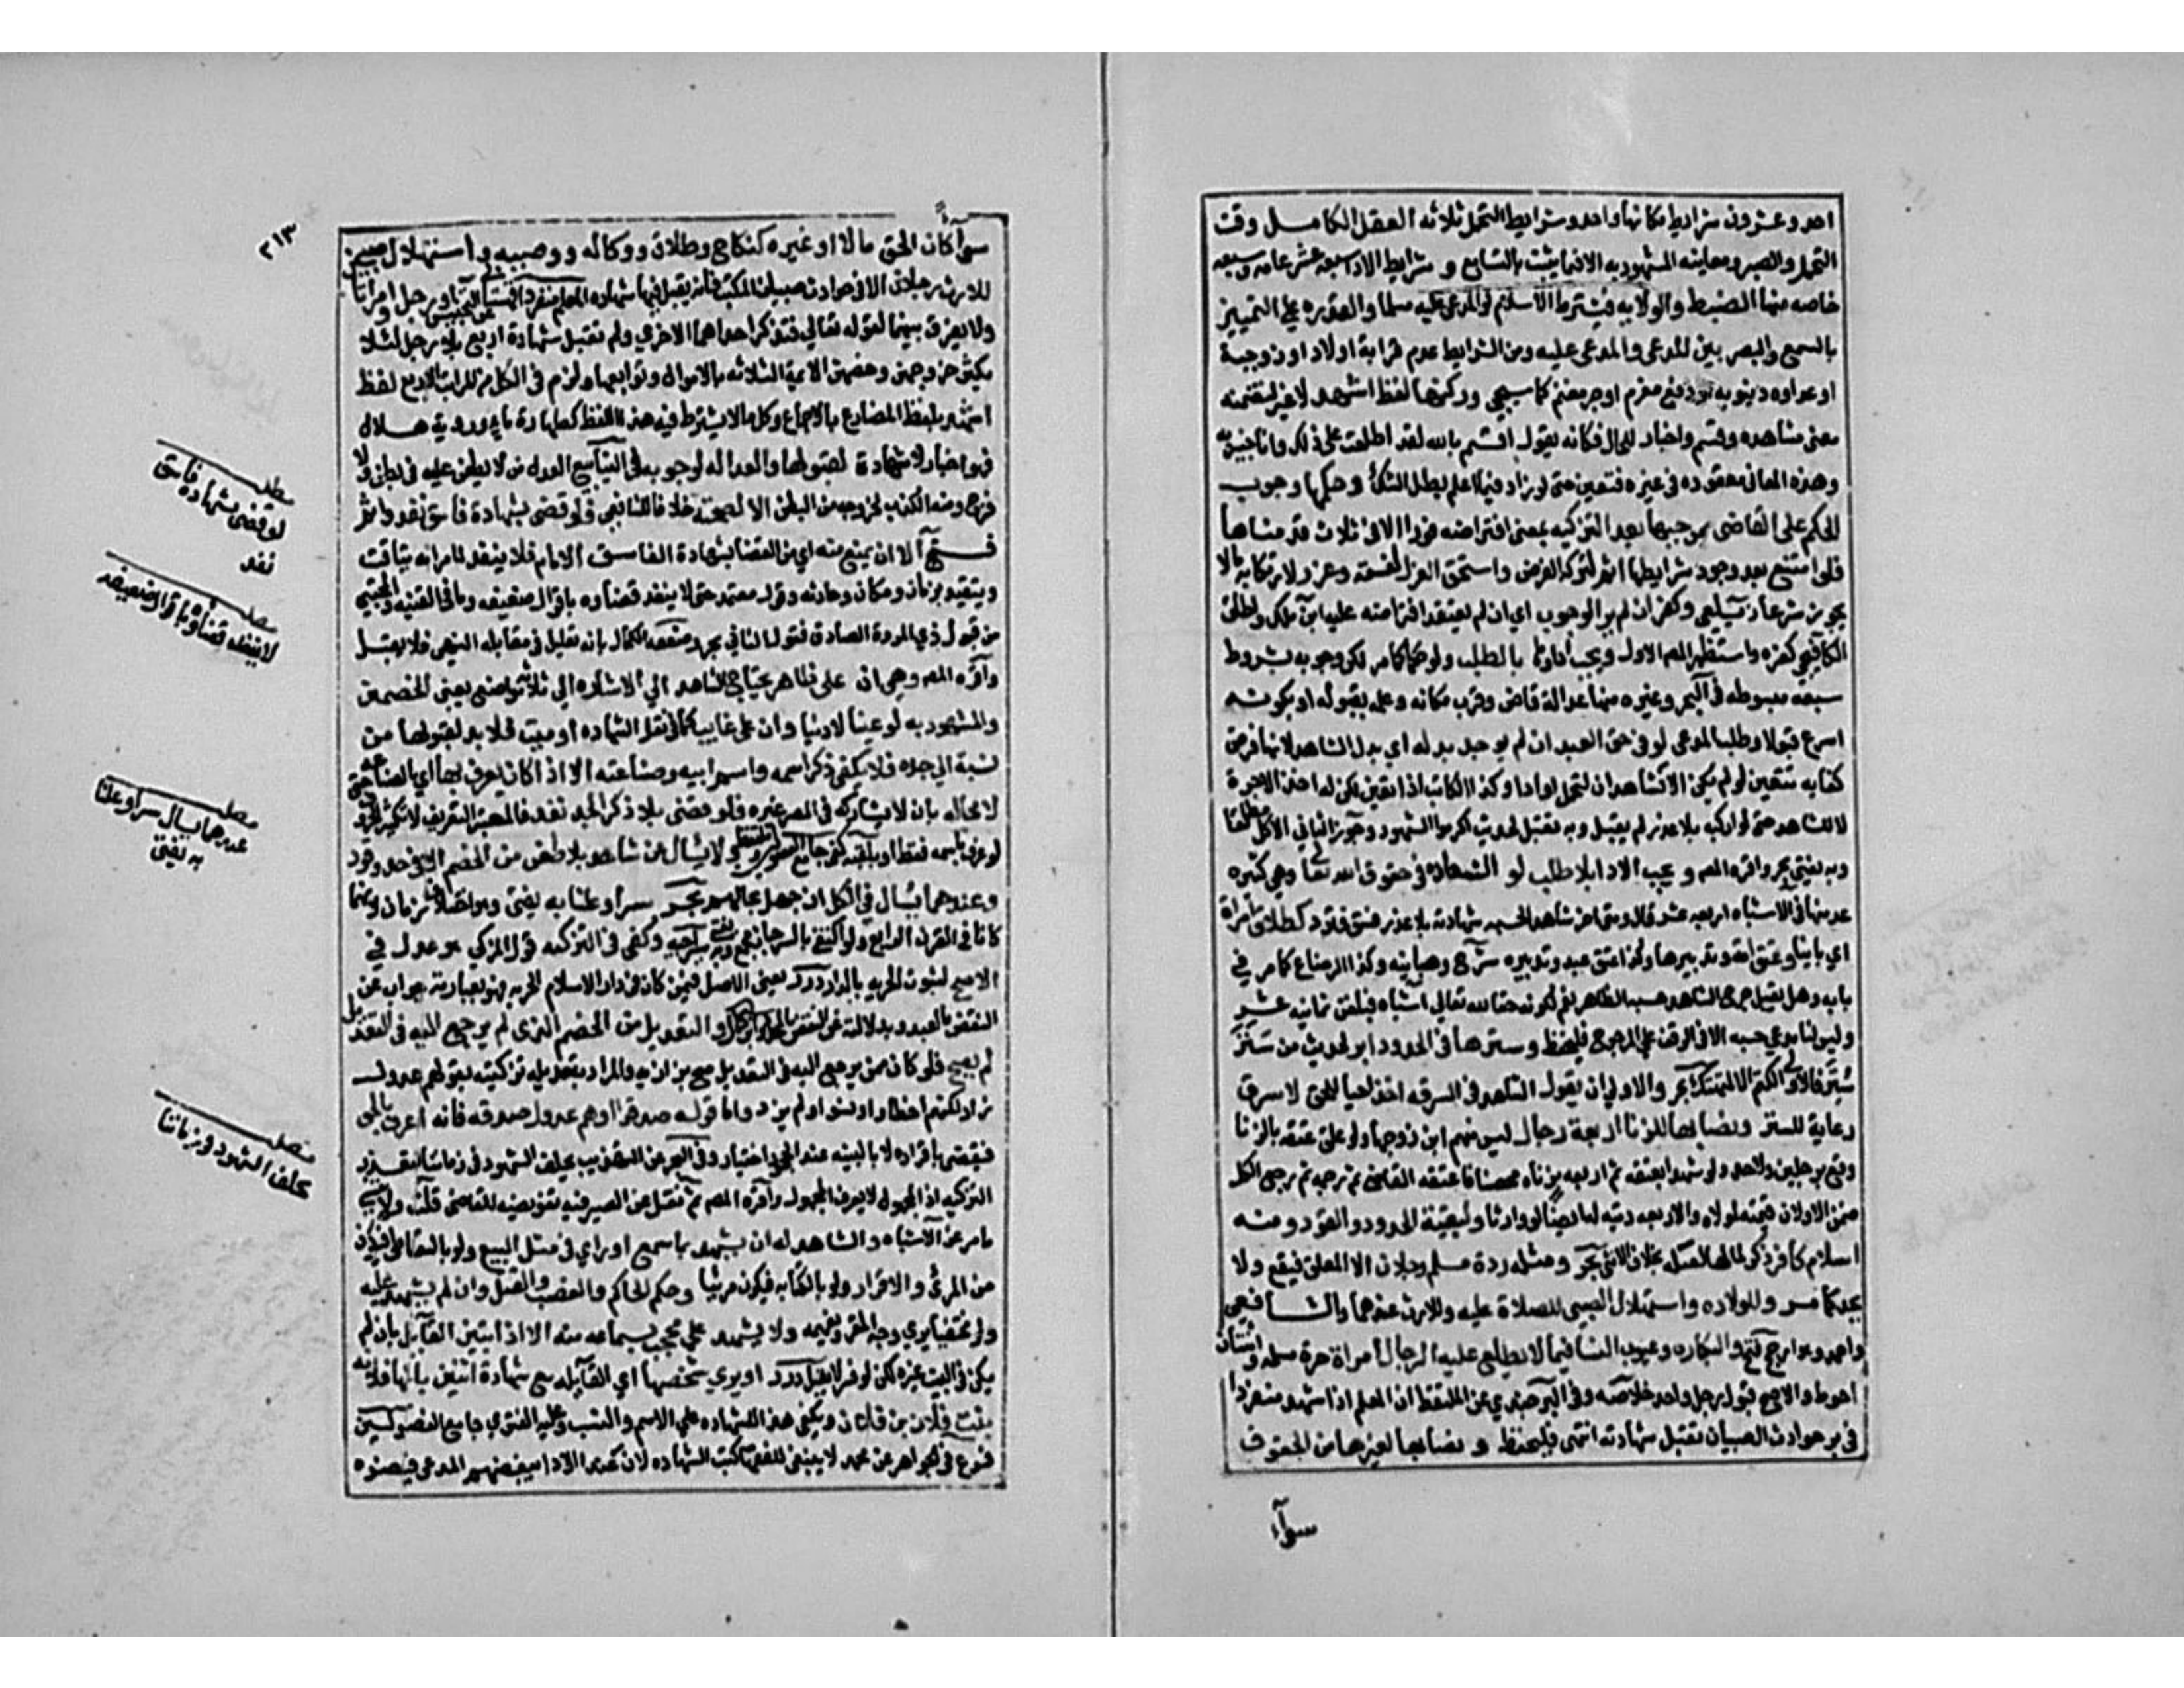 احد وعشرون شرايط مكانها واحد وشرايط التحمل ثلاثه العقل الكامل وقت
التحمل والبصر ومعاينه المشهود به الا فيما يثبت بالتسامع و شرايط الادا سبعه عشر عامه وسبعه
خاصه منها الضبط والولايه فيشترط الاسلام لو المدعى عليه مسلما والقدره على التمييز
بالسمع والبصر بين المدعى والمدعى عليه ومن الشرايط عدم قرابة اولاد او زوجية
او عداوه دنيويه او دفع مغرم او جر مغنم كما سيجي وركنها لفظ اشهد لا غير لتضمنه
معنى مشاهده وقسم واخبار للحال فكانه يقول اقسم بالله لقد اطلعت على ذلك وانا اخبر به
وهذه المعانى مفقوده فى غيره فتعين حتى لو زاد فيما اعلم بطل للشك وحكمها وجوب
الحكم على القاضى بموجبها بعد التزكيه بمعنى افتراضه فورا الا فى ثلاث قدمناها
فلو امتنع بعد وجود شرايطها اثم لتركه الفرض واستحق العزل لفسقه وعزر لارتكابه مالا
يجوز شرعا زيلعي وكفر ان لم ير الوجوب اي ان لم يعتقد افتراضه عليه ابن ملك واطلق
الكافيجي كفره واستظهر المص الاول ويجب اداوها بالطلب ولو حكما كما مر لكن وجوبه بشروط
سبعه مبسوطه فى البحر وغيره منها عدالة قاض وقرب مكانه وعلمه بقبوله او بكونه
اسرع قبولا وطلب المدعى لو فى حق العبد ان لم يوجد بدله اي بدل الشاهد لانها فرض
كفايه تتعين لو لم يكن الا شاهدان لتحمل او ادا وكذا الكاتب اذا تعين لكن له اخذ الاجرة
لا للشاهد حتى لو اركبه بلا عذر لم يقبل وبه تقبل لحديث اكرموا الشهود وجوز الثاني الاكل مطلقا
وبه يفتى بحر واقره المص و يجب الادا بلا طلب لو الشهادة فى حقوق الله تعا وهي كثيره
عد منها فى الاشباه اربعه عشر قال ومتى اخر شاهد الحسبه شهادته بلا عذر فسق فترد كطلاق امراة
اي باينا وعتق امة وتدبيرها وكذا عتق عبد وتدبيره شرح وهبانيه وكذا الرضاع كما مر في
بابه وهل يقبل جرح الشاهد حسبه الظاهر نعم لكونه حقا لله تعالى اشباه فبلغت ثمانيه عشر
وليس لنا مدعى حسبه الا فى الوقف على المرجوح فليحفظ وسترها فى الحدود ابر لحديث من ستر
ستر فالاولى الكتم الا لمتهتك بحر والاولى ان يقول الشاهد فى السرقه اخذ احيا للحق لا سرق
رعاية للستر ونصابها للزنا اربعة رجال ليس منهم ابن زوجها ولو علق عتقه بالزنا
وقع برجلين ولا حد ولو شهدا بعتقه ثم اربعه بزناه محصنا فاعتقه القاضى ثم رجمه ثم رجع الكل
ضمن الاولان قيمته لمولاه والاربعه ديته له ايضا لو وارثا ولبقية الحدود والقود ومنه
اسلام كافر ذكر لمالها لقتله بخلاف الانثى بحر ومثله ردة مسلم رجلان الا المعلق فيقع ولا
يحد كما مر وللولاده واستهلال الصبى للصلاة عليه وللارث عندهما والشافعى
واحمد وهو ارجح فتح والبكاره وعيوب النسا فيما لا يطلع عليه الرجال امراة حرة مسلمه وثنتان
احوط والاصح قبول رجل واحد خلاصه وفى البرجندي عن الملتقط ان المعلم اذا شهد منفردا
فى حوادث الصبيان تقبل شهادته انتهى فليحفظ و نصابها لغيرها من الحقوق
سوآء
٢١٣
سوآ كان الحق مالا او غيره كنكاح وطلاق ووكاله ووصيه واستهلال صبى
للارث رجلان الا فى حوادث صبيان المكتب فانه يقبل فيها شهادة المعلم منفردا او رجل وامراتان
ولا يفرق بينهما لقوله تعالى فتذكر احداهما الاخري ولم تقبل شهادة اربع بلا رجل لئلا
يكثر خروجهن وخصهن الايمة الثلاثه بالاموال وتوابعها ولزم فى الكل من المراتب الاربع لفظ
اشهد بلفظ المضارع بالاجماع وكل ما لا يشترط فيه هذا اللفظ كطهارة ما ورويه هلال
فهو اخبار لا شهادة لقبولها والعداله لوجوبه فى الينابيع العدل من لا يطعن عليه فى بطن ولا
فرج ومنه الكذب لخروجه من البطن الا لصحته خلافا للشافعى فلو قضى بشهادة فاسق نفذ واثم
فتح الا ان يمنع منه اي من القضا بشهادة الفاسق الامام فلا ينفذ لما مر انه يتاقت
ويتقيد بزمان ومكان وحادثه وقول معتمد حتى لا ينفذ قضاوه باقوال ضعيفه وما فى القنيه والمجتبى
من قبول ذي المروة الصادق فقول الثانى بحر وضعفه الكمال بانه تعليل فى مقابله النص فلا يقبل
واقره المص وهى ان على حاضر يحتاج الشاهد الى الاشاره الى ثلاثة مواضع يعنى الخصمين
والمشهود به لو عينا لا دينا وان على غايب كما فى نقل الشهاده او ميت فلا بد لقبولها من
نسبة الى جده فلا يكفى ذكر اسمه واسم ابيه وصناعته الا اذا كان يعرف بها اي بالصناعه
لا محاله بان لا يشاركه فى المصر غيره فلو قضى بلا ذكر الجد نفذ فالمعتبر التعريف لا تكثير الحروف
لو عرف باسمه فقط او بلقبه كفى جامع الفصولين وملتقط ولا يسال عن شاهد بلا طعن من الخصم الا فى حد وقود
وعندهما يسال فى الكل ان جهل بحالهم بحر سرا وعلنا به يفتى وهو اختلاف زمان لانهما
كانا فى القرن الرابع ولو اكتفى بالسر جاز مجمع وبه يفتى سراجيه وكفى فى التزكيه قول المزكى هو عدل في
الاصح لثبوت الحريه بالدار درر يعنى الاصل فيمن كان فى دار الاسلام الحريه فهو بعبارته جواب عن
النقض بالعبد وبدلالته عن النقض بالمحدود والتعديل من الخصم الذى لم يرجع اليه فى التعديل
لم يصح فلو كان ممن يرجع اليه فى التعديل صح بزازيه والمراد بتعديله تزكيته بقوله هم عدول
زاد لكنهم اخطاوا او نسوا او لم يزد واما قوله صدقوا او هم عدول صدقه فانه اعراف بالحق
فيقضى باقراره لا بالبينه عند الجحود اختيار وفى البحر عن التهذيب يحلف الشهود فى زماننا لتعذر
التزكيه اذ المجهول لا يعرف المجهول واقره المص ثم نقل عن الصيرفيه تفويضه للقاضى قلت ولا تنس
ما مر عن الاشباه والشاهد له ان يشهد بما سمع او راي فى مثل البيع ولو بالتعاطى فيكون
من المرئى والاقرار ولو بالكتابه فيكون مرئيا وحكم الحاكم والغصب والقتل وان لم يشهد عليه
ولو مختفيا يري وجه المقر ويفهمه ولا يشهد على محجب بسماعه منه الا اذا تبين القايل بان لم
يكن فى البيت غيره لكن لو فسر لا يقبل درر او يري شخصها اي القايله مع شهادة اثنين بانها فلانه
بنت فلان بن فلان ويكفى هذا للشهاده على الاسم والنسب وعليه الفتوي جامع الفصولين
فروع فى الجواهر عن محمد لا ينبغى للفقها كتب الشهاده لان عند الادا يبغضهم المدعى فيضره
مطلب
لو قضى بشهاده فاسق
نفذ
مطلب
لا ينفذ قضاوه باقوال ضعيفه
مطلب
عندهما يسال سرا وعلنا
به يفتى
مطلب
يحلف الشهود فى زماننا